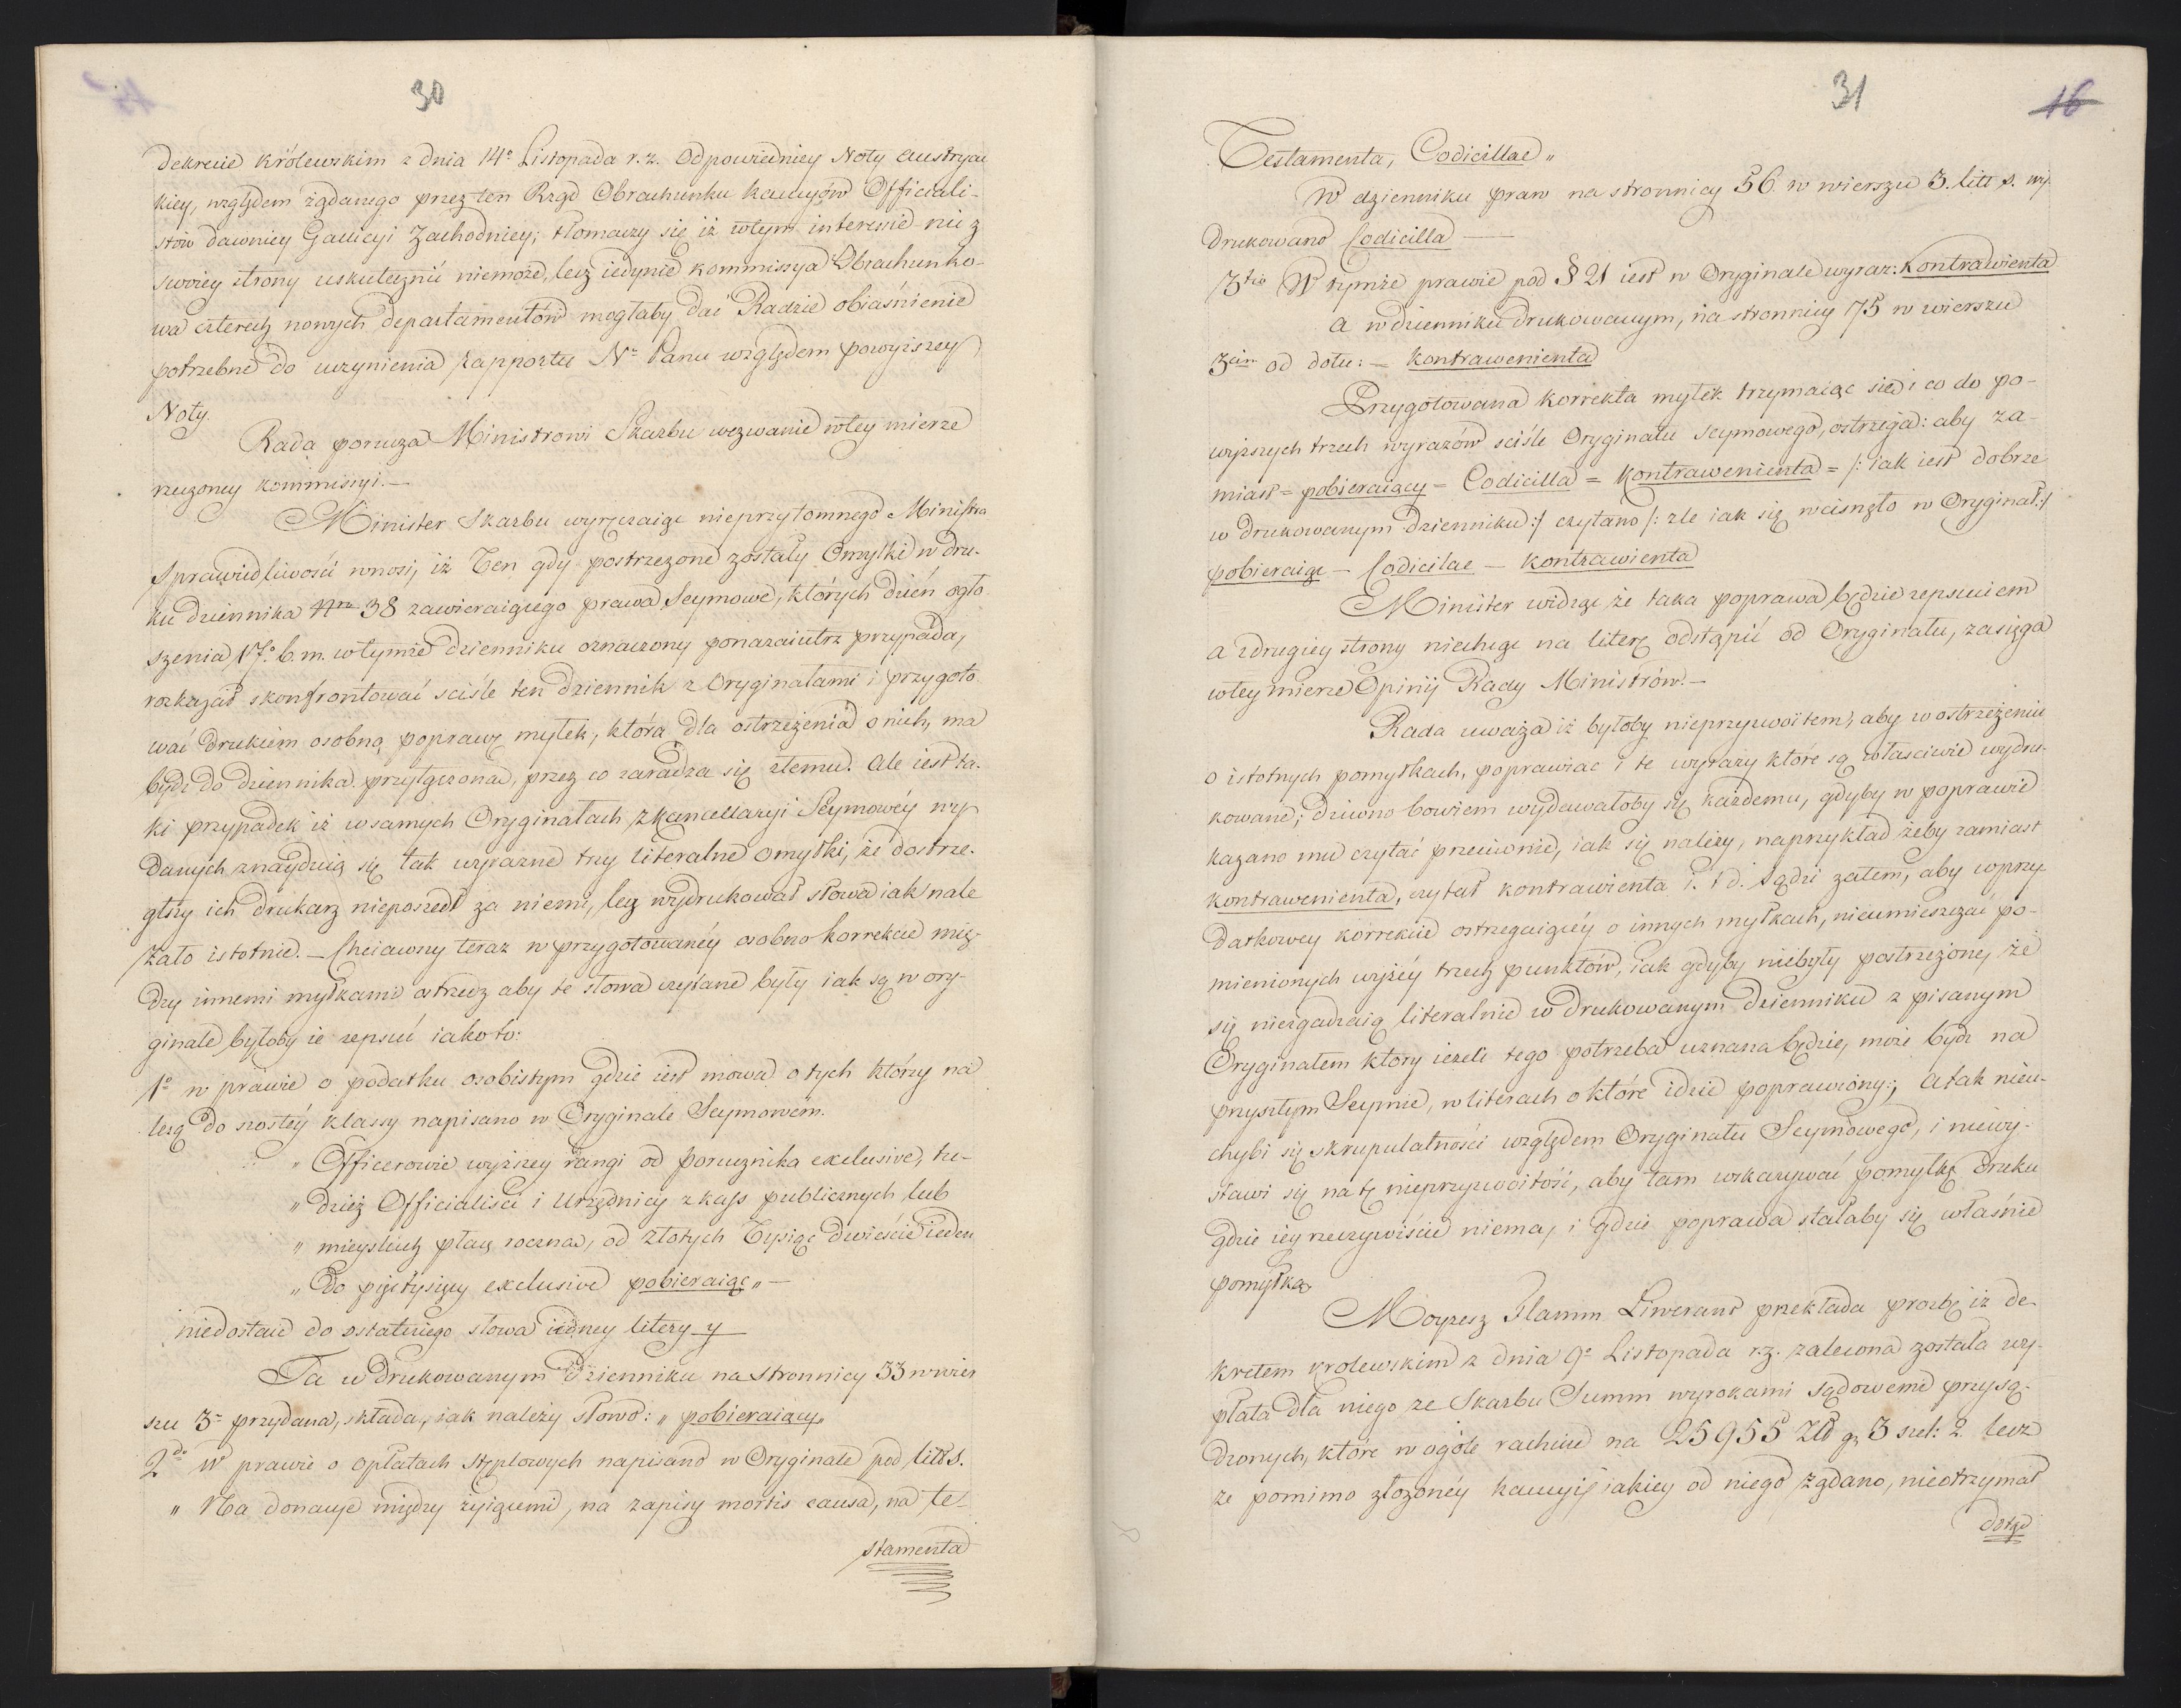 30
dekrecie Królewskim z dnia 14º Listopada r. z. Odpowiedniey Noty Austryac
kiey, względem żądanego przez ten Rząd Obrachunku kaucyów Officiali-
stów dawniey Gallicyi Zachodniey; tłomaczy się iż wtym interessie nic z
swoiey strony uskutecznić niemoże, lecz iedynie kommissya Obrachunko-
wa czterech nowych departamentów mogłaby dać Radzie obiaśnienie
potrzebne do uczynienia rapportu Nº Panu względem powyższey
Noty.
Rada porucza Ministrowi Skarbu wezwanie wtey mierze
rzeczoney kommissyi.—
Minister Skarbu wyręczaiąc nieprzytomnego Ministra
Sprawiedliwości wnosi, iż Ten gdy postrzeżone zostały Omyłki w dru-
ku dziennika Nro 38 zawieraiącego prawa Seymowe, których dzień ogło
szenia 17º b. m. wtymże dzienniku oznaczony ponazaiutrz przypada,
rozkazał skonfrontować sciśle ten dziennik z Oryginałami i przygoto
wać drukiem osobną poprawę myłek, która dla ostrzeżenia o nich, ma
bydź do dziennika przyłączona, przez co zaradza się złemu. Ale iest ta-
ki przypadek iż w samych Oryginałach z kancellaryi Seymowéy wy
danych znayduią się tak wyraźne trzy literalne omyłki, że dostrze-
głszy ich drukarz nieposzedł za niemi, lecz wydrukował słowa iak nale
żało istotnie.— Chciawszy teraz w przygotowanéy osobno korrekcie mię-
dzy innemi myłkami ostrzedz aby te słowa czytane były iak są w ory-
ginale byłoby ie zepsuć iako to:
1º w prawie o podatku osobistym gdzie iest mowa o tych którzy na
leżą do szostéy klassy napisano w Oryginale Seymowém.
„ Officerowie wyższey rangi od porucznika exclusive, tu-
„ dzież Officialisci i Urzędnicy z kass publicznych lub
„ mieyskich płacę roczną, od złotych Tysiąc dwieście ieden
„ Do pięciutysięcy exclusive pobieraiąc „ —
niedostaie do ostatniego słowa iedney litery y
Ta w drukowanym Dzienniku na stronnicy 33 w wier
szu 3º przydana, składa, iak należy słowo: „ pobieraiący„
2do W prawie o opłatach stęplowych napisano w Oryginale pod litt s.
„ Na donacye między żyiącemi, na zapisy mortis causa, na te-
stamenta
31
16
Testamenta, Codicillae „
W dzienniku praw na stronnicy 56 w wierszu 3. litt s. wy-
drukowano Codicilla —
3tio W tymże prawie pod § 21 iest w Oryginale wyraz: kontrawienta
a w dzienniku drukowanym, na stronnicy 75 w wierszu
3cim od dołu: — kontrawenienta
Przygotowana korrekta myłek trzymaiąc się i co do po-
wyższych trzech wyrazów sciśle Oryginału Seymowego, ostrzega: aby za-
miast = pobieraiący = Codicilla = kontrawenienta = /: iak iest dobrze
w drukowanym dzienniku :/ czytano /: źle iak się wcisnęło w Oryginał :/
pobieraiąc — Codicilae — kontrawienta
Minister widząc że taka poprawa będzie zepsuciem
a zdrugiey strony niechcąc na literę odstąpić od Oryginału, zasięga
wtey mierze Opinij Rady Ministrów.—
Rada uważa iż byłoby nieprzyzwoitem, aby w ostrzeżeniu
o istotnych pomyłkach, poprawiać i te wyrazy które są właściwie wydru-
kowane; dziwno bowiem wydawałoby się każdemu, gdyby w poprawie
kazano mu czytać przeciwnie, iak się należy, naprzykład żeby zamiast
kontrawenienta, czytał kontrawienta i. t d. Sądzi zatem, aby wprzy-
datkowey korrekcie ostrzegaiącéy o innych myłkach, nieumieszczać po-
mienionych wyżéy trzech punktów, iak gdyby niebyły postrzeżone, że
się niezgadzaią literalnie w drukowanym dzienniku z pisanym
Oryginałem który ieżeli tego potrzeba uznana będzie, może bydź na
przyszłym Seymie, w literach o które idzie poprawiony; a tak nieu-
chybi się skrupulatności względem Oryginału Seymowego, i niewy-
stawi się na tę nieprzyzwoitość, aby tam wskazywać pomyłkę druku
gdzie iey rzeczywiście niema, i gdzie poprawa stałaby się właśnie
pomyłką
Moyzesz Flamm Liwerant przekłada prozbę iż de-
kretem krolewskim z dnia 9º Listopada r. z. zalecona została wy-
płata dla niego ze Skarbu Summ wyrokami sądowemi przysą-
dzonych, które w ogóle rachuie na 25955 Zł gr 3 szel: 2 lecz
że pomimo złożonéy kaucyi iakiey od niego żądano, nieotrzymał
dotąd